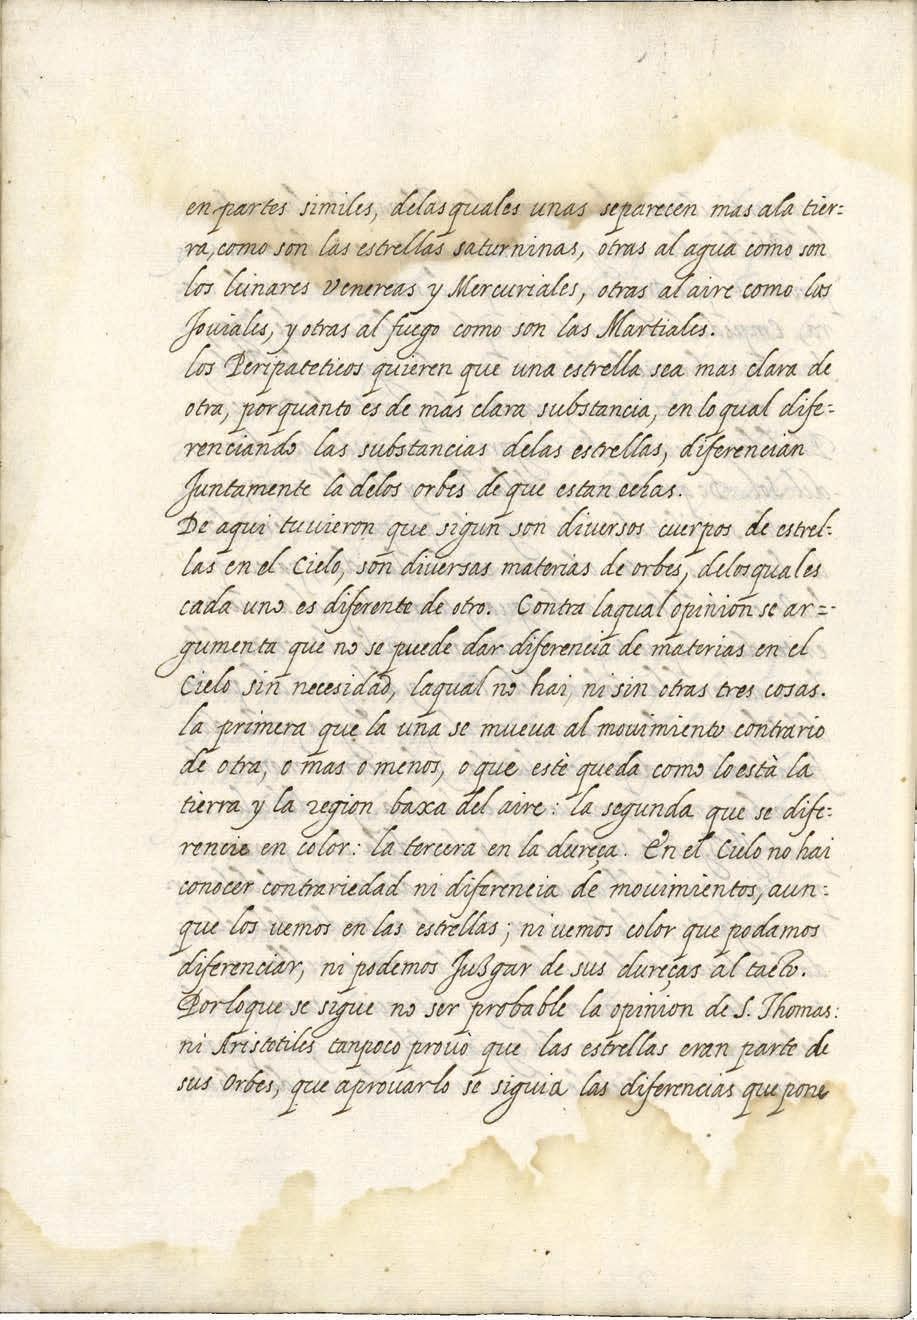 en partes similes, delasquales unas separecen mas ala tier=
ra, como son las estrellas saturninas, otras al agua como son
los lunares Venereas y Mercuriales, otras al aire como las
Jouiales, y otras al fuego como son las Martiales.
los Peripateticos quieren que una estrella sea mas clara de
otra, porquanto es de mas clara substancia, en lo qual dife=
renciando las substancias delas estrellas, diferencian
Juntamente la delos orbes de que estan echas.
De aqui tuvieron que sigun son diversos cuerpos de estrel=
las en el Cielo, son diuersas materias de orbes, delosquales
cada uno es diferente de otro. Contra laqual opinion se ar=
gumenta que no se puede dar diferencia de materias en el
Cielo sin necesidad, laqual no hai, ni sin otras tres cosas.
la primera que la una se mueua al mouimiento contrario
de otra, o mas o menos, o que estè queda como lo està la
tierra y la region baxa del aire: la segunda que se dife=
rencie en color: la tercera en la dureça. En el Cielo no hai
conocer contrariedad ni diferencia de mouimientos, aun=
que los uemos en las estrellas; ni uemos color que podamos
diferenciar, ni podemos Juzgar de sus dureças al tacto.
Porloque se sigue no ser probable la opinion de S. Thomas:
ni Aristotiles tanpoco prouò que las estrellas eran parte de
sus Orbes, que aprouarlo se siguia las diferencias que pone